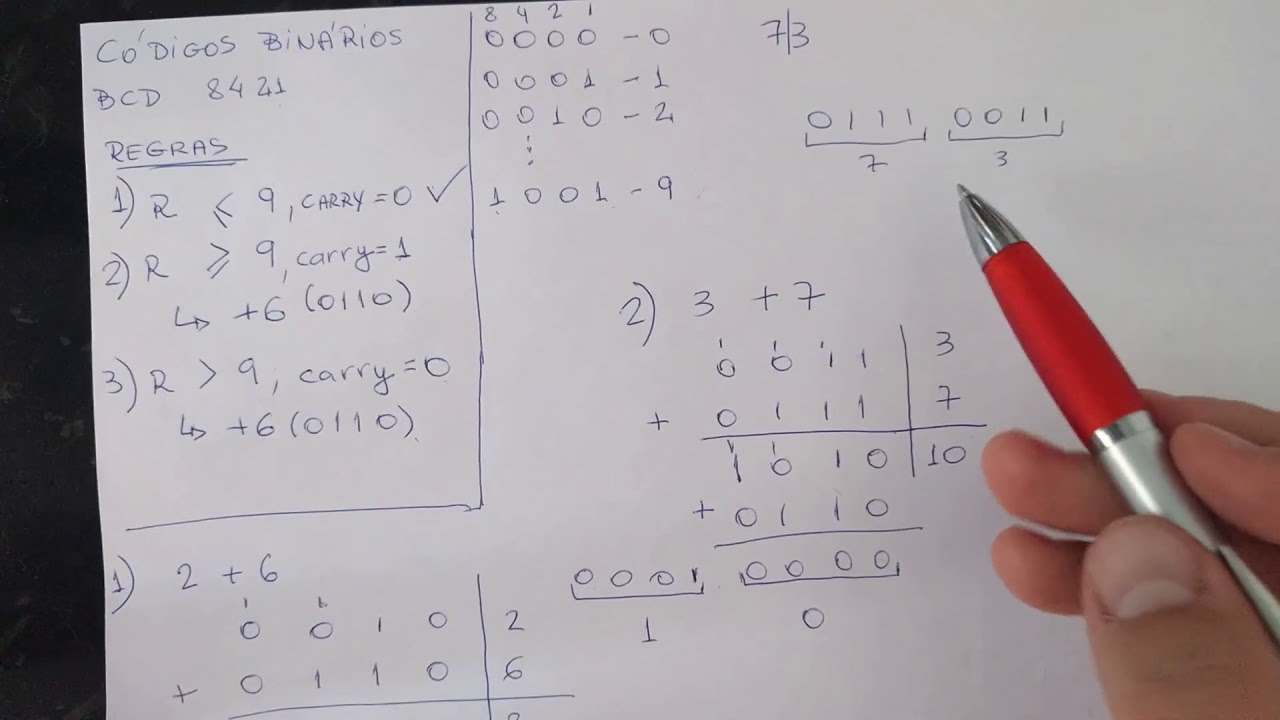 CÓDIGOS BINÁRIOS
BCD 8421
REGRAS
1) R ≤ 9, CARRY=0 ✓
2) R ≥ 9, carry=1
↳ +6 (0110)
3) R > 9, carry=0
↳ +6 (0110)
8 4 2 1
0 0 0 0 - 0
0 0 0 1 - 1
0 0 1 0 - 2
⋮
1 0 0 1 - 9
7|3
0 1 1 1 0 0 1 1
7 3
2) 3 + 7
1 1 1
0 0 1 1 | 3
+ 0 1 1 1 | 7
1 1
1 0 1 0 | 10
+ 0 1 1 0
0 0 0 1 0 0 0 0
1 0
1) 2 + 6
1 1
0 0 1 0 | 2
+ 0 1 1 0 | 6